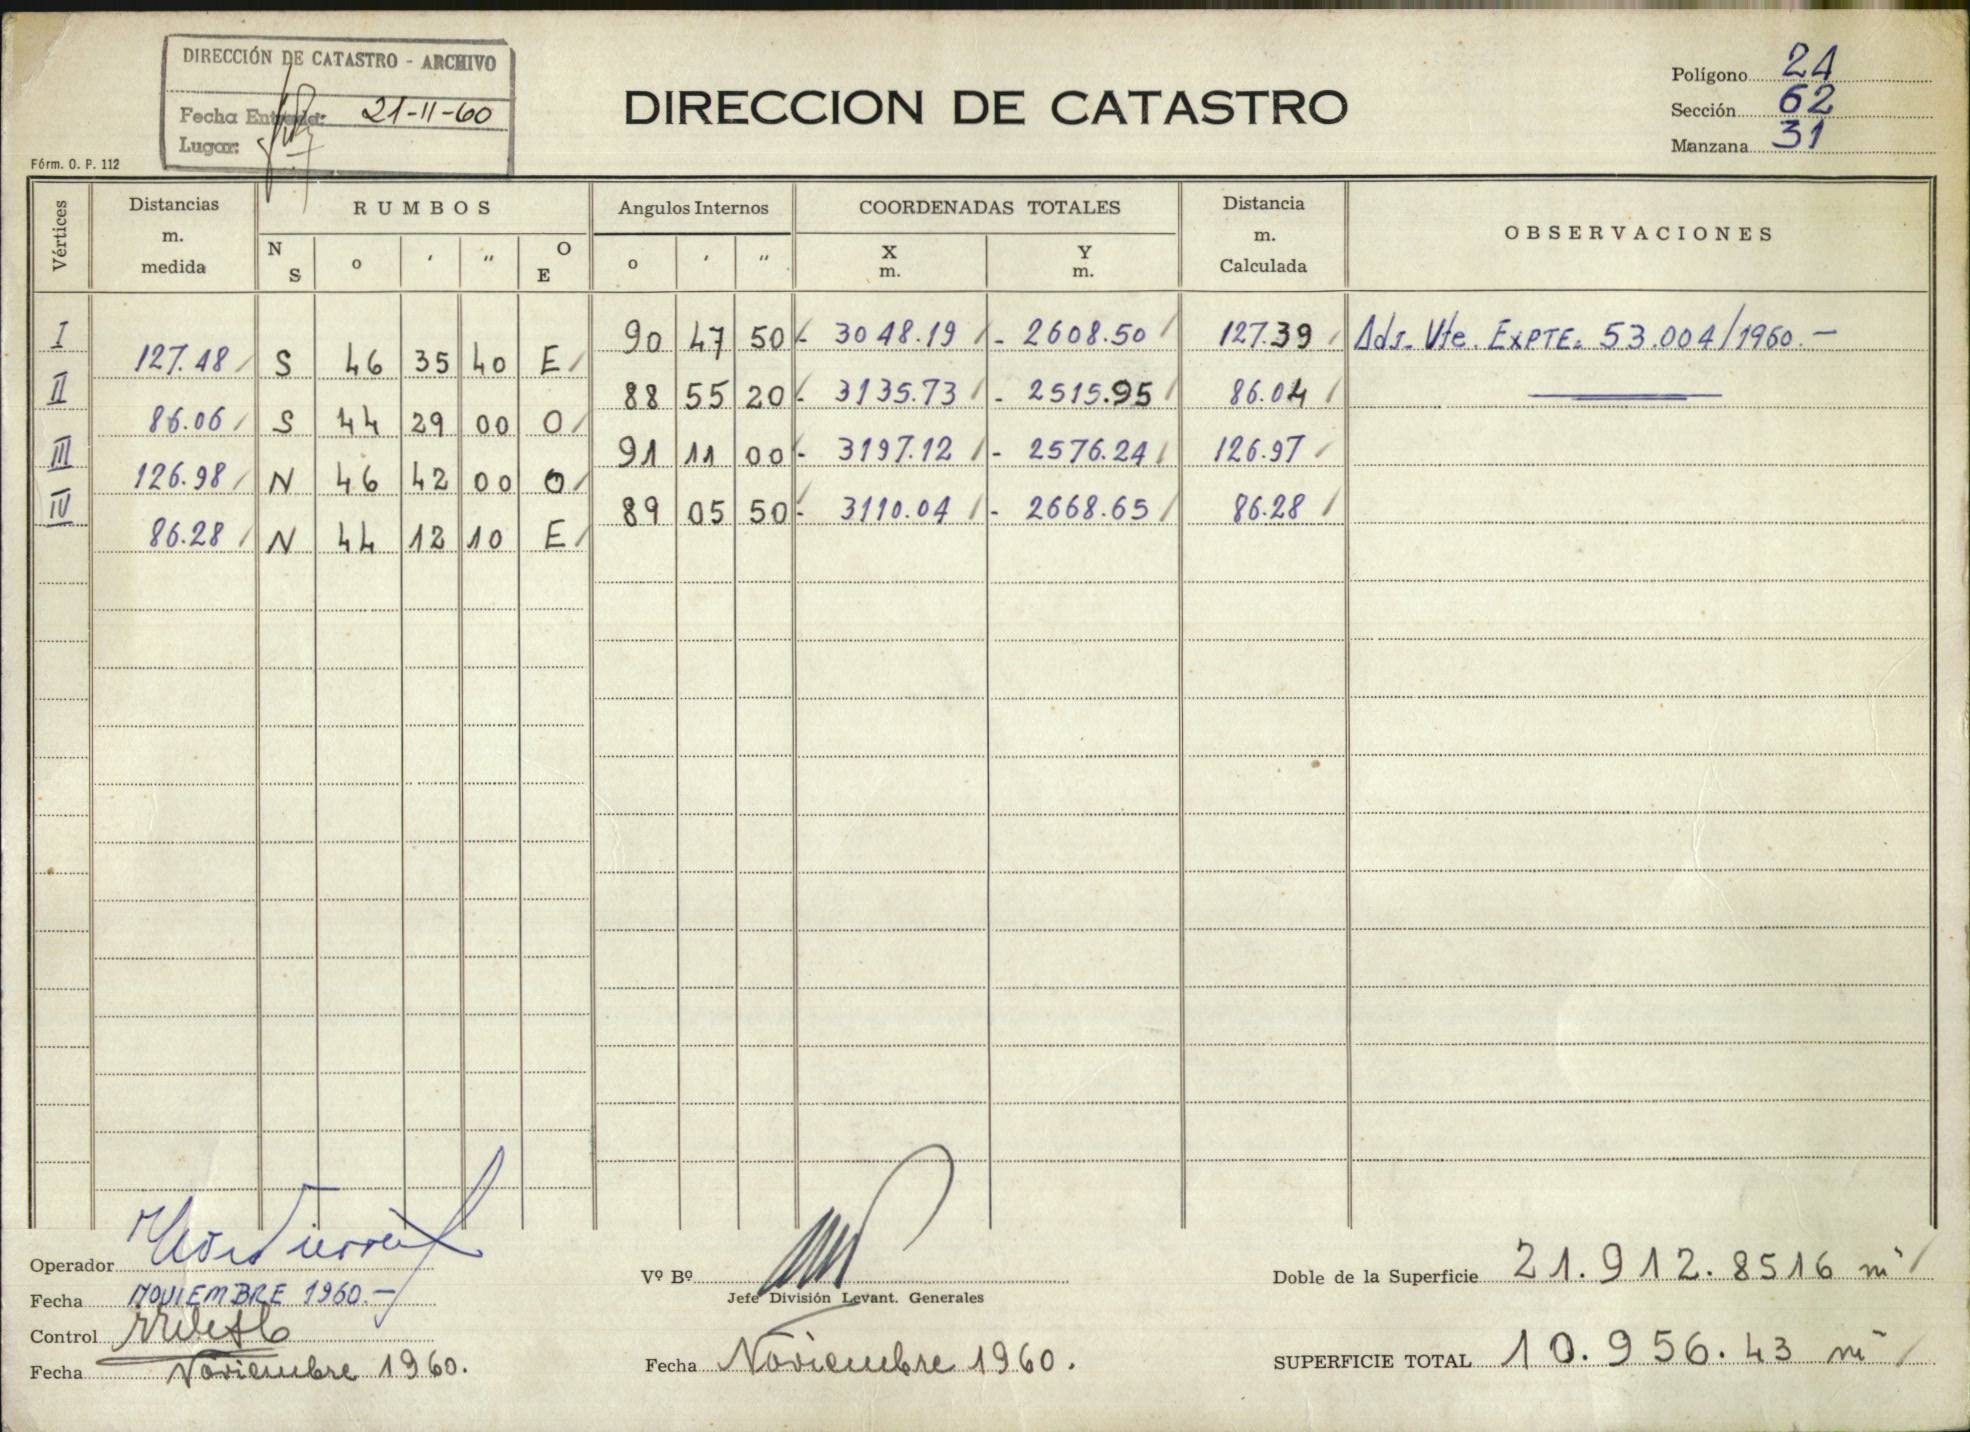 DIRECCIÓN DE CATASTRO - ARCHIVO
Fecha Entrada: 21-11-60
Lugar:
Fórm. O. P. 112
DIRECCION DE CATASTRO
Polígono 24
Sección 62
Manzana 31
Vértices Distancias m. medida RUMBOS Angulos Internos COORDENADAS TOTALES Distancia m. Calculada OBSERVACIONES
N S o ' " O E o ' " X m. Y m.
I 90 47 50 - 3048.19 - 2608.50 127.39 Adj. Vte. EXPTE. 53.004/1960.-
127.48 S 46 35 40 E
II 88 55 20 - 3135.73 - 2515.95 86.04
86.06 S 44 29 00 O
III 91 11 00 - 3197.12 - 2576.24 126.97
126.98 N 46 42 00 O
IV 89 05 50 - 3110.04 - 2668.65 86.28
86.28 N 44 12 10 E
Operador
Fecha NOVIEMBRE 1960.-
Control
Fecha Noviembre 1960.
Vº Bº
Jefe División Levant. Generales
Fecha Noviembre 1960.
Doble de la Superficie 21.912.8516 m²
SUPERFICIE TOTAL 10.956.43 m²